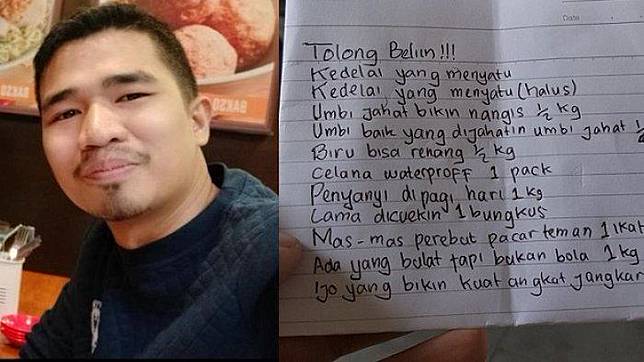 BAKSO
BAKSO
Date
Tolong Beliin!!!
Kedelai yang menyatu
Kedelai yang menyatu (halus)
Umbi jahat bikin nangis ½ kg
Umbi baik yang dijahatin umbi jahat
Biru bisa renang ½ kg
Celana waterproff 1 pack
Penyanyi di pagi hari 1 kg
Lama dicuekin 1 bungkus
Mas-mas perebut pacar teman 1 ikat
Ada yang bulat tapi bukan bola 1 kg
Ijo yang bikin kuat angkat jangkar